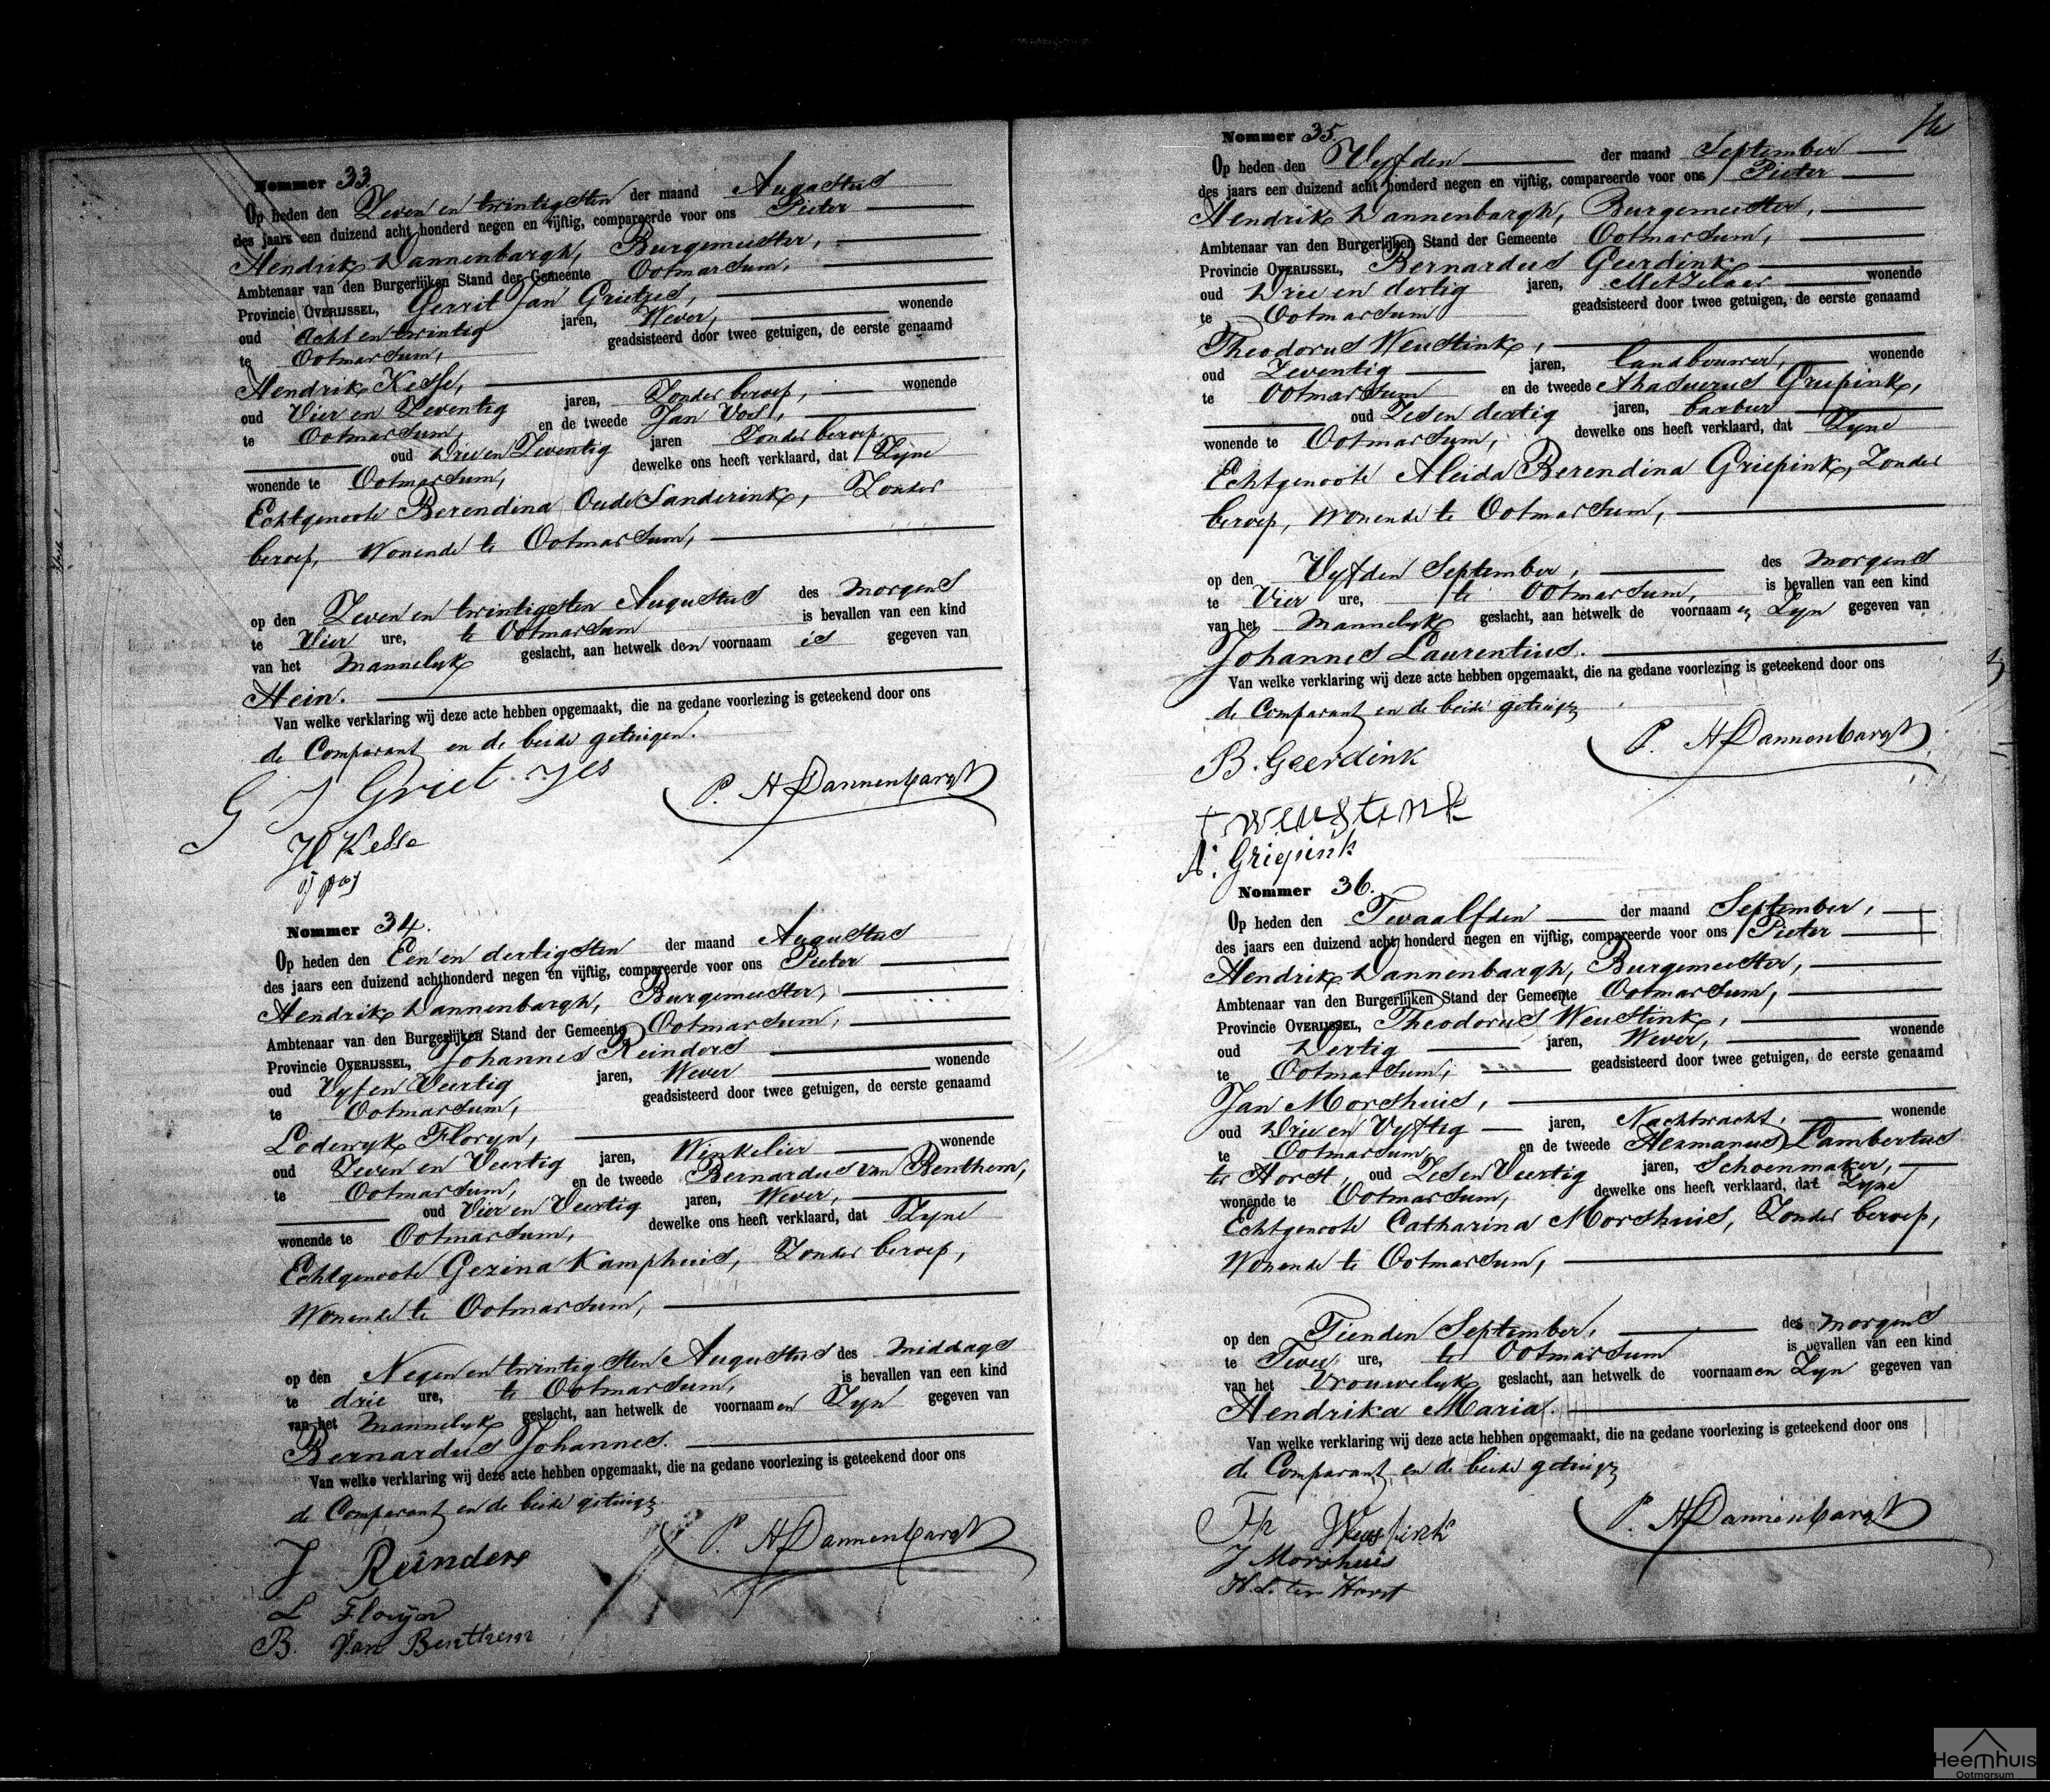 Nommer 33.
Op heden den Zeven en twintigsten der maand Augustus
des jaars een duizend acht honderd negen en vijftig, compareerde voor ons Pieter
Hendrik Dannenbargh, Burgemeister,
Ambtenaar van den Burgerlijken Stand der Gemeente Ootmarsum,
Provincie OVERIJSSEL, Gerrit Jan Grietjes,
oud Acht en twintig jaren, Wever, wonende
te Ootmarsum, geadsisteerd door twee getuigen, de eerste genaamd
Hendrik Kesse,
oud Vier en Zeventig jaren, Zonder beroep, wonende
te Ootmarsum, en de tweede Jan Vos,
oud Drie en Zeventig jaren Zonder beroep,
wonende te Ootmarsum, dewelke ons heeft verklaard, dat Zyne
Echtgenoote Berendina Oude Sanderink, Zonder
beroep, Wonende te Ootmarsum,
op den Zeven en twintigsten Augustus des morgens
te Vier ure, te Ootmarsum is bevallen van een kind
van het Mannelyk geslacht, aan hetwelk den voornaam is gegeven van
Hein.
Van welke verklaring wij deze acte hebben opgemaakt, die na gedane voorlezing is geteekend door ons
de Comparant en de beide getuigen.
G J Griet Jes
P. H Dannenbargh
H Kesse
Nommer 34.
Op heden den Een en dertigsten der maand Augustus
des jaars een duizend achthonderd negen en vijftig, compareerde voor ons Pieter
Hendrik Dannenbargh, Burgemeister,
Ambtenaar van den Burgerlijken Stand der Gemeente Ootmarsum,
Provincie OVERIJSSEL, Johannes Reinders
oud Vyf en Veertig jaren, Wever wonende
te Ootmarsum, geadsisteerd door twee getuigen, de eerste genaamd
Lodewyk Floryn,
oud Zeven en Veertig jaren, Winkelier wonende
te Ootmarsum, en de tweede Bernardus van Benthem,
oud Vier en Veertig jaren, Wever,
wonende te Ootmarsum, dewelke ons heeft verklaard, dat Zyne
Echtgenoote Gezina Kamphuis, Zonder beroep,
Wonende te Ootmarsum,
op den Negen en twintigsten Augustus des middags
te drie ure, te Ootmarsum, is bevallen van een kind
van het Mannelyk geslacht, aan hetwelk de voornaamen Zyn gegeven van
Bernardus Johannes.
Van welke verklaring wij deze acte hebben opgemaakt, die na gedane voorlezing is geteekend door ons
de Comparant en de beide getuigen
J Reinders
P. H Dannenbargh
L Floryn
B. Van Benthem
Nommer 35.
Op heden den Vyfden der maand September
des jaars een duizend acht honderd negen en vijftig, compareerde voor ons Pieter
Hendrik Dannenbargh, Burgemeister,
Ambtenaar van den Burgerlijken Stand der Gemeente Ootmarsum,
Provincie OVERIJSSEL, Bernardus Geerdink
oud Drie en dertig jaren, Metzelaer wonende
te Ootmarsum geadsisteerd door twee getuigen, de eerste genaamd
Theodorus Weustink,
oud Zeventig jaren, landbouwer, wonende
te Ootmarsum en de tweede Ahasuerus Griepink,
oud Zes en dertig jaren, barbier
wonende te Ootmarsum, dewelke ons heeft verklaard, dat Zyne
Echtgenoote Aleida Berendina Griepink, Zonder
beroep, Wonende te Ootmarsum,
op den Vyfden September, des morgens
te Vier ure, te Ootmarsum, is bevallen van een kind
van het Mannelyk geslacht, aan hetwelk de voornaamen Zyn gegeven van
Johannes Laurentius.
Van welke verklaring wij deze acte hebben opgemaakt, die na gedane voorlezing is geteekend door ons
de Comparant en de beide getuigen
P. H Dannenbargh
B. Geerdink
T weustenk
A. Griepink
Nommer 36.
Op heden den Twaalfden der maand September,
des jaars een duizend acht honderd negen en vijftig, compareerde voor ons Pieter
Hendrik Dannenbargh, Burgemeister,
Ambtenaar van den Burgerlijken Stand der Gemeente Ootmarsum,
Provincie OVERIJSSEL, Theodorus Weustink,
oud Dertig jaren, Wever, wonende
te Ootmarsum, geadsisteerd door twee getuigen, de eerste genaamd
Jan Morshuis,
oud Drie en Vyftig jaren, Nachtwacht, wonende
te Ootmarsum, en de tweede Hermanus Lambertus
ter Horst, oud Zes en Veertig jaren, Schoenmaker,
wonende te Ootmarsum, dewelke ons heeft verklaard, dat Zyne
Echtgenoote Catharina Morshuis, Zonder beroep,
Wonende te Ootmarsum,
op den Tienden September, des morgens
te Twee ure, te Ootmarsum is bevallen van een kind
van het Vrouwelyk geslacht, aan hetwelk de voornaamen Zyn gegeven van
Hendrika Maria.
Van welke verklaring wij deze acte hebben opgemaakt, die na gedane voorlezing is geteekend door ons
de Comparant en de beide getuigen
P. H Dannenbargh
J Morshuis
H. L. ter Horst
Heemhuis
Ootmarsum